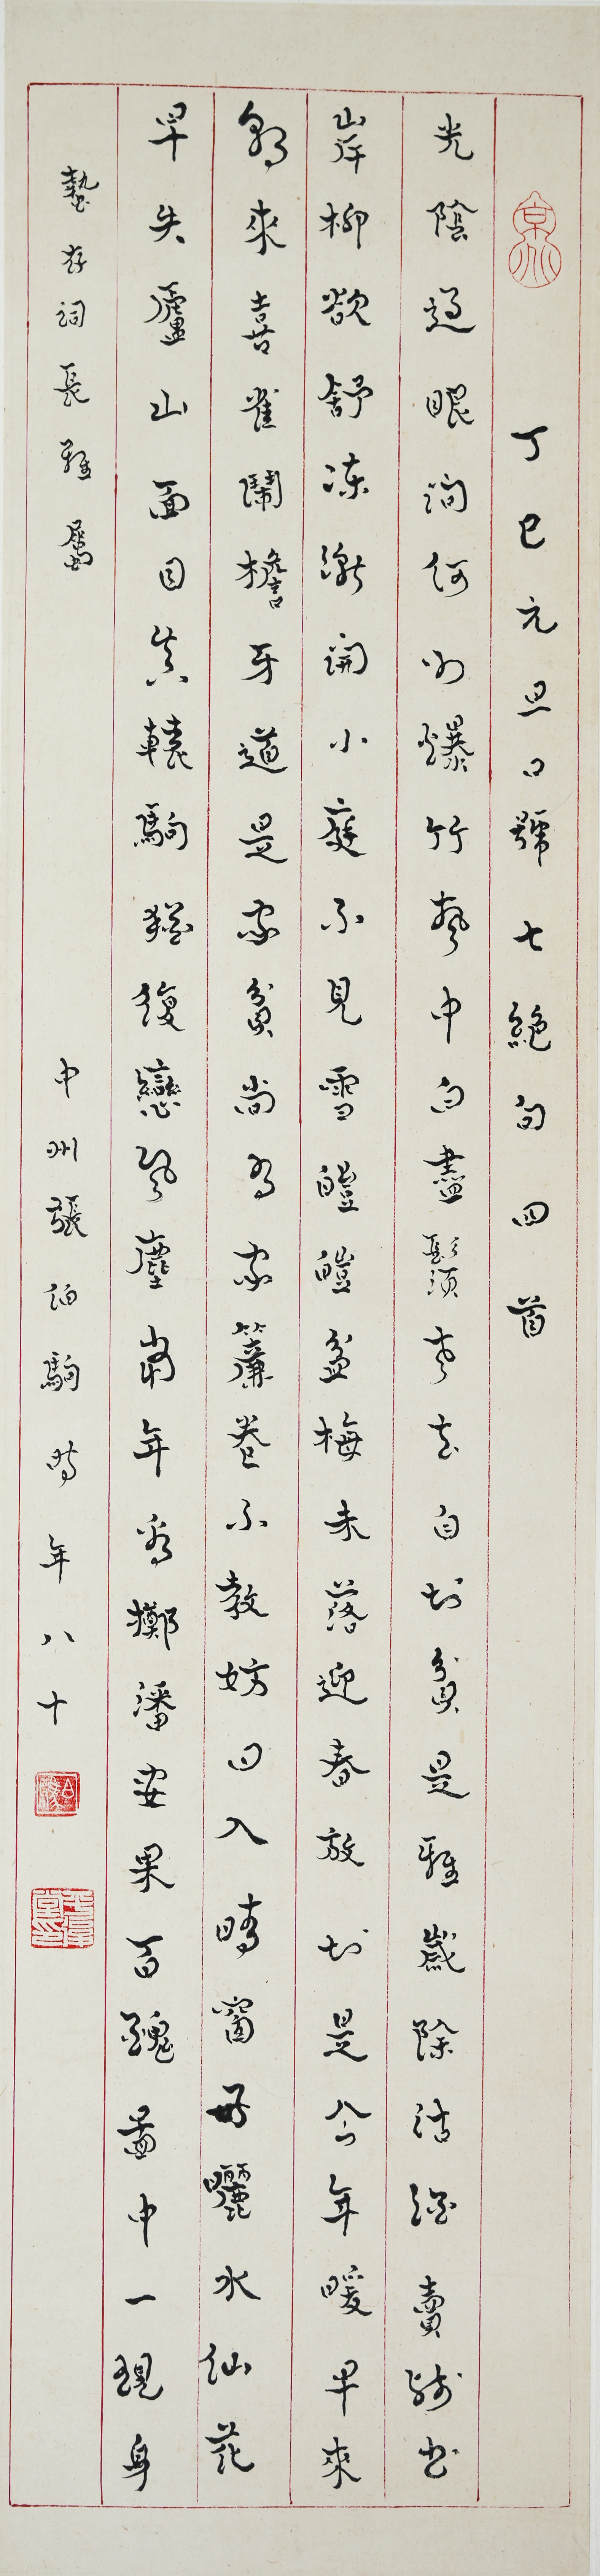 丁巳元旦口號七絕句四首
光陰過眼詢何如爆竹聲中白盡鬚老去自知貧是雅歲除沽酒賣殘書
岸柳欲舒凍漸開小庭不見雪皚皚盆梅未落迎春放知是今年暖早來
朝來喜雀鬧檐牙道是家貧尚有家簾卷不教妨日入晴窗好曬水仙花
早失廬山面目真轅駒猶復戀風塵當年看擲潘安果百醜圖中一現身
蟄存詞長雅屬
中州張伯駒時年八十
平復堂印